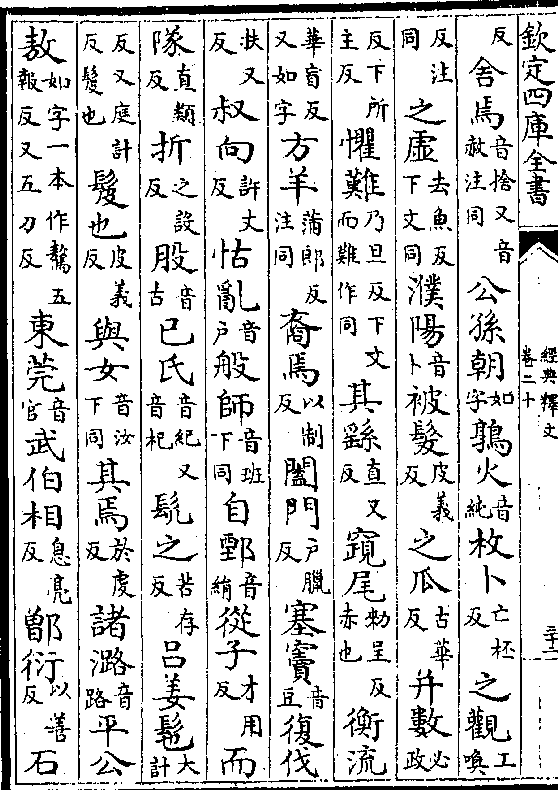 欽定四庫全書
經典釋文
卷二十
反舍焉音捨又音赦注同公孫朝如字鶉火音純枚卜亡杯反之觀工喚
反注同之虛去魚反下文同濮陽音卜被髮皮義反之瓜古華反幷數必政
反下所主反懼難乃旦反下文而難作同其繇直又反竀尾勑呈反赤也衡流
華盲反又如字方羊蒲郎反注同裔焉以制反闔門戶臘反塞竇音豆復伐
扶又反叔向許丈反怙亂音戶般師音班下同自鄄音絹從子才用反而
隊直類反折之設反股音古已氏音紀又音杞髡之苦存反呂姜髢大計
反又庭計反髮也髲也皮義反與女音汝下同其焉於虔反諸潞音路平公
敖如字一本作驁五報反又五刀反東莞音官武伯相息亮反鄫衍以善反石